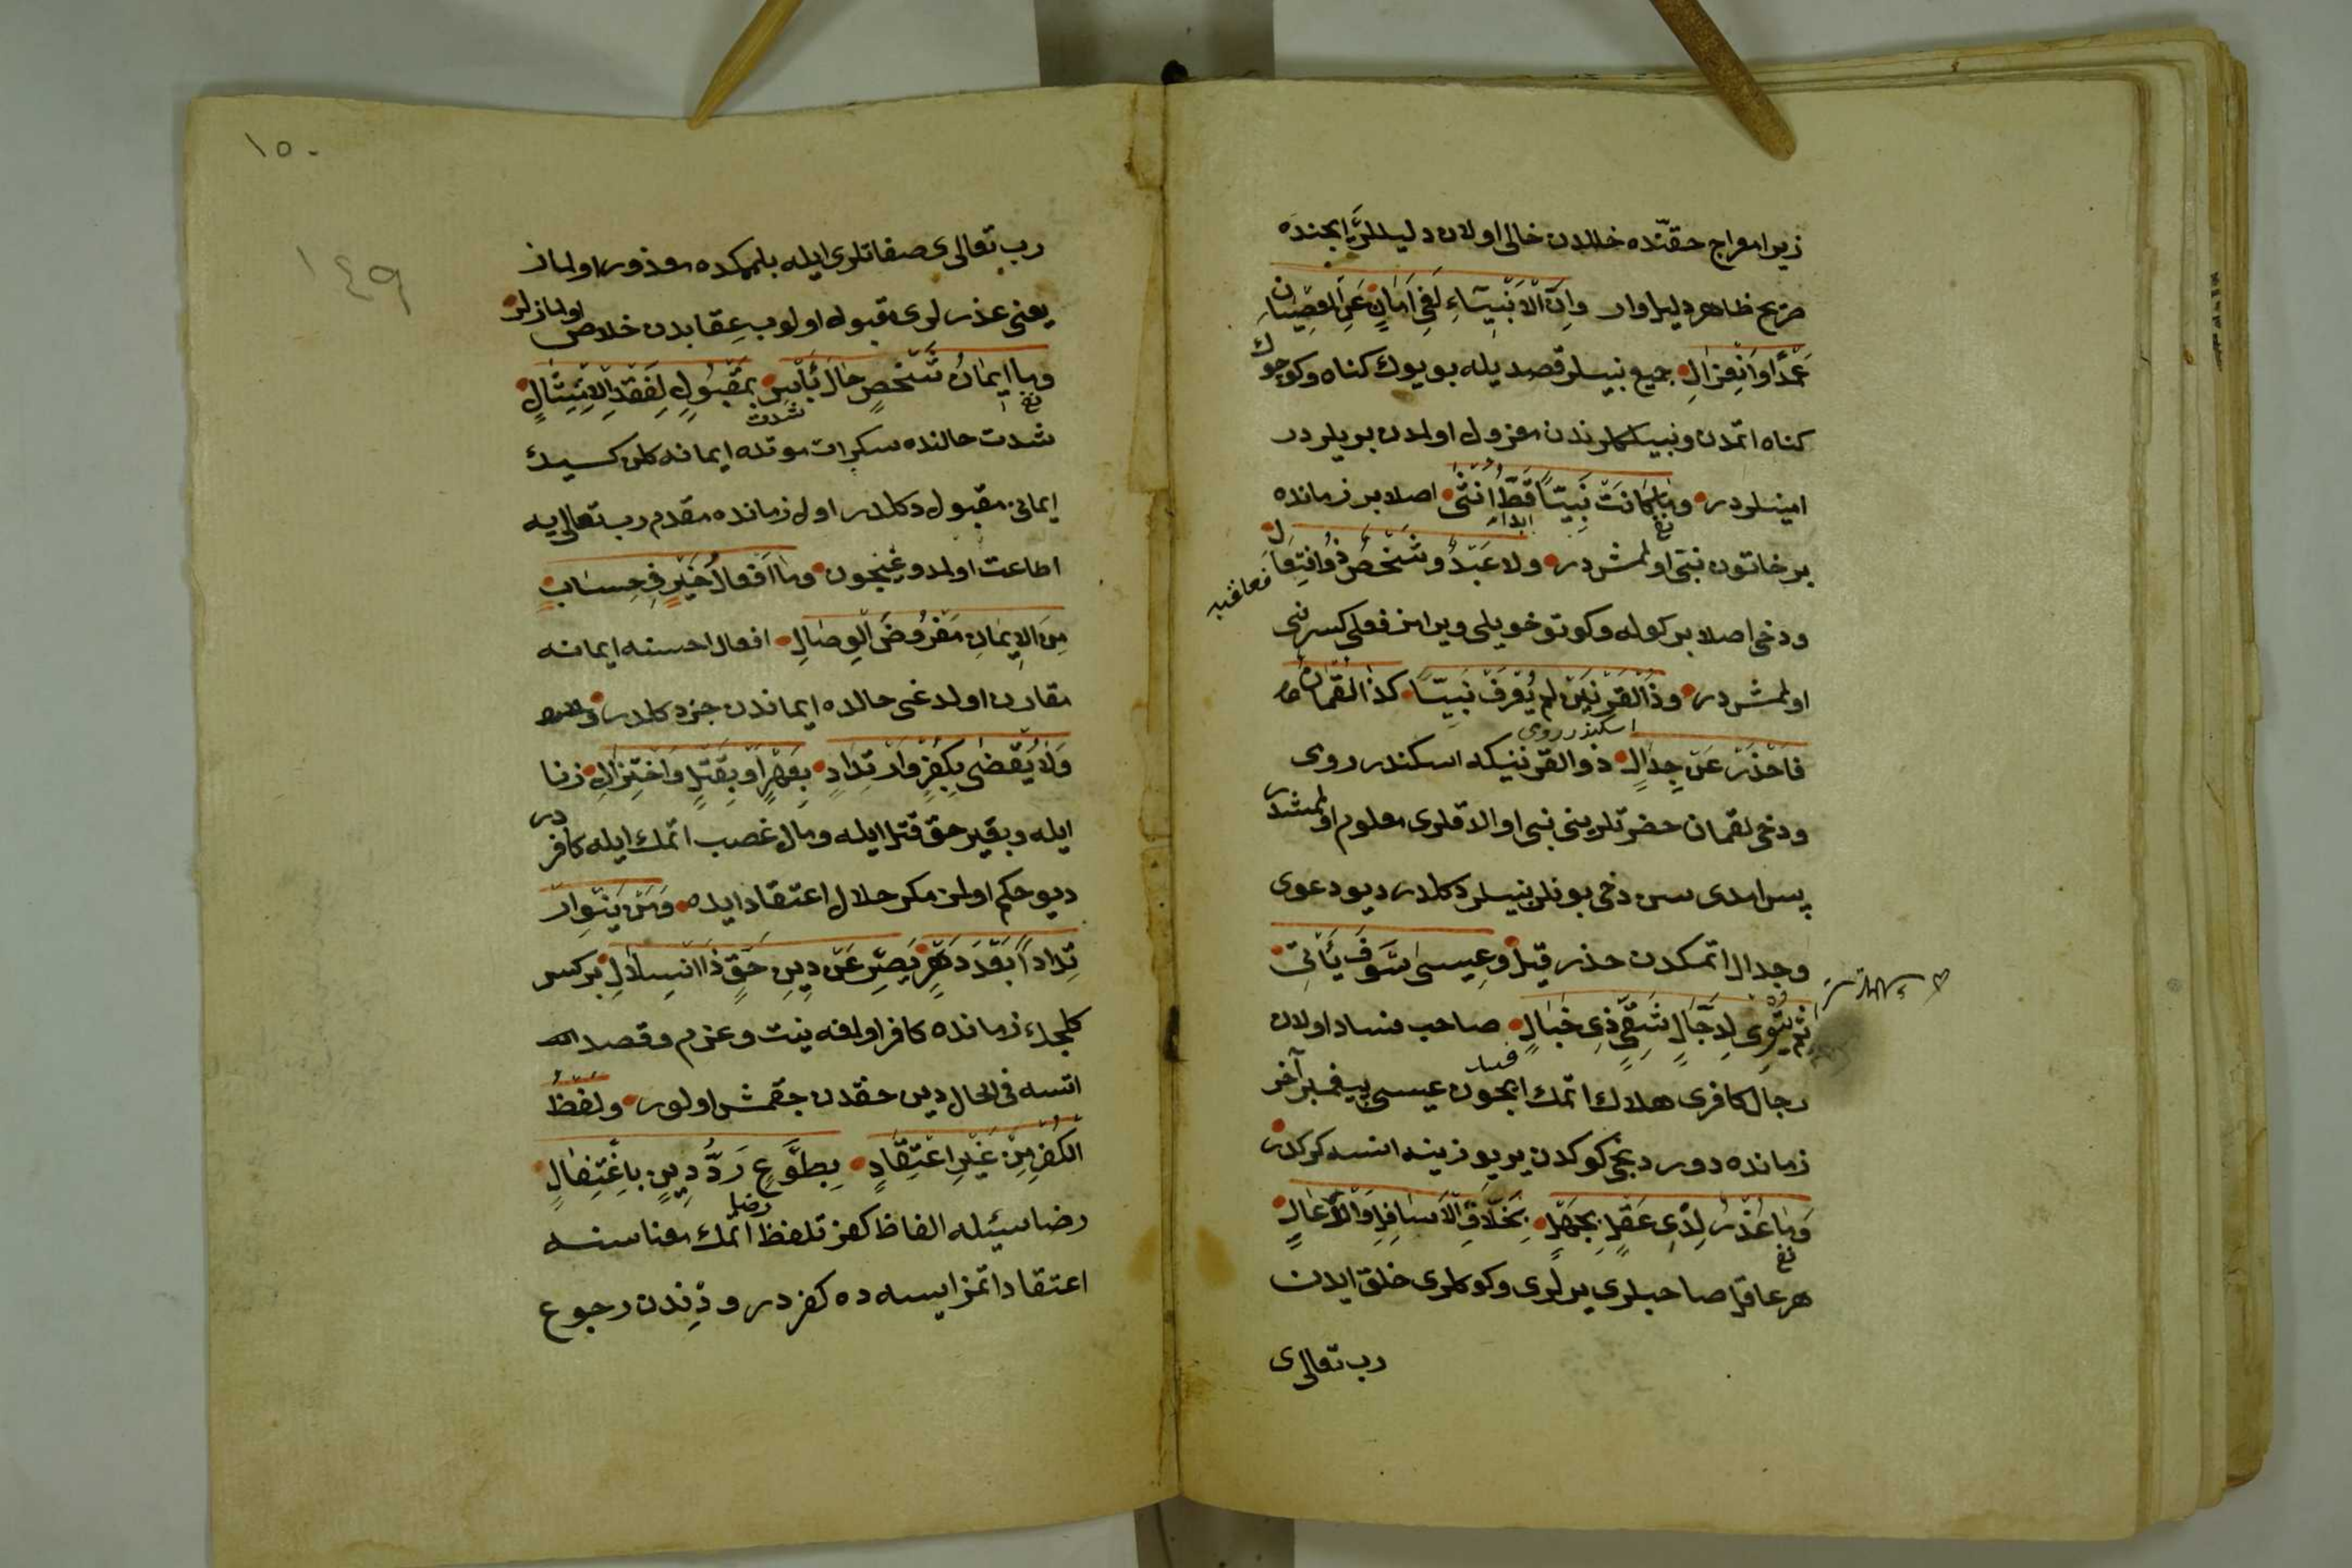 زيرا معراج حقنده خللدن خالى اولان دليللر ايچنده
صريح ظاهر دليل وار وان الانبياء لفى امان عن العصيان
عمدا وانعزال جميع نبيلر قصديله بويوك كناه وكوچوك
كناه اتمدن ونبيلكلرندن معزول اولمدن بريلردر
امينلردر وما كانت نبيا قط انثى اصلا بر زمانده
نفى
ابدا
بر خاتون نبى اولمشدر ولا عبد وشخص ذو افتعال
ودخى اصلا بر كوله وكوتو خويلى ويرامز فعلى كسه نبى
اولمشدر وذو القرنين لم يعرف نبيا كذا لقمان
اسكندر رومى
فاحذر عن جدال ذو القرنينكه اسكندر رومى
ودخى لقمان حضرتلرينى نبى اوالاقلرى معلوم اولمشدر
پس امدى سن دخى بونلر نبيلر دكلدر ديو دعوى
وجدال اتمكدن حذر قيل وعيسى سوف يأتى
ثم يتوى لدجال شقى ذى خبال صاحب فساد اولان
دجال كافرى هلاك اتمك ايچون عيسى پيغمبر آخر
زمانده دوردنجى كوكدن ير يوزينه انسه كركدر
وما عذر لذى عقل بجهل بخلاق الاسافل والاعال
نفى
هر عاقل صاحبلرى يرلرى وكوكلرى خلق ايدن
رب تعالى
١٥٠
١٤٩
رب تعالى صفاتلرى ايله بلمكده معذور اولماز
يعنى عذرلرى مقبول اولوب عقابدن خلاص اولمازلر
وما ايمان شخص حال يأس بمقبول لفقد الامتثال
نفى
شدت
شدت حالنده سكرات موتده ايمانه كلن كسنك
ايمانى مقبول دكلدر اول زمانده مقدم رب تعالى يه
اطاعت اولمدوغيچون وما افعال خير فى حساب
من الايمان مفروض الوصال افعال حسنه ايمانه
مقارن اولدغى حالده ايماندن جزء دكلدر
ولا يقضى بكفر وارتداد بعهر او بقتل واختزال زنا
ايله وبغير حق قتل ايله ومال غصب اتمك ايله كافردر
ديو حكم اولمز مكر حلال اعتقاد ايده ومن ينو ار
تدادا بعد دهر يصر عن دين حق ذا انسلال بر كسه
كلجك زمانده كافر اولمغه نيت وعزم وقصد
اتسه فى الحال دين حقدن چقمش اولور ولفظ
الكفر من غير اعتقاد بطوع رد دين باغتفال
رضا
رضاسيله الفاظ كفر تلفظ اتمك معناسنه
اعتقاد اتمز ايسه ده كفردر ودّيندن رجوع